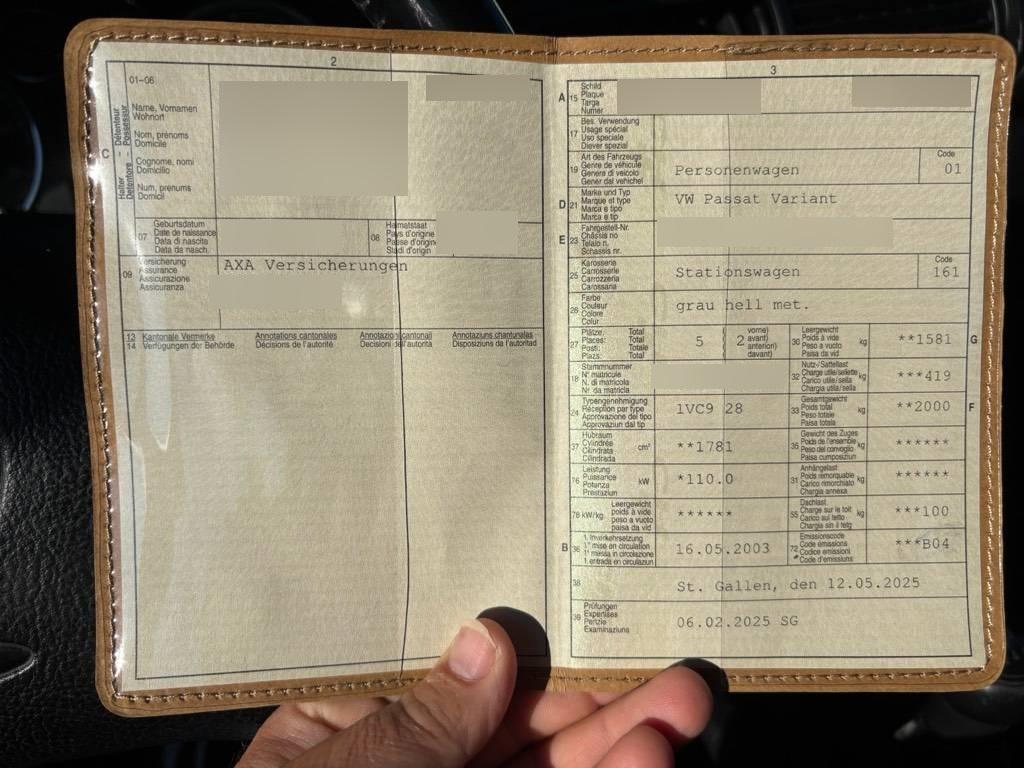 2
01-06
C
Halter - Détenteur
Detentore - Possessur
Name, Vornamen
Wohnort
Nom, prénoms
Domicile
Cognome, nomi
Domicilio
Num, prenums
Domicil
07
Geburtsdatum
Date de naissance
Data di nascita
Data da nasch.
08
Heimatstaat
Pays d'origine
Paese d'origine
Stadi d'origin
09
Versicherung
Assurance
Assicurazione
Assicuranza
AXA Versicherungen
13 Kantonale Vermerke Annotations cantonales Annotazioni cantonali Annotaziuns chantunalas
14 Verfügungen der Behörde Décisions de l'autorité Decisioni dell'autorità Disposiziuns da l'autoritad
3
A 15
Schild
Plaque
Targa
Numer
17
Bes. Verwendung
Usage spécial
Uso speciale
Diever spezial
19
Art des Fahrzeugs
Genre de véhicule
Genere di veicolo
Gener dal vehichel
Personenwagen
Code
01
D 21
Marke und Typ
Marque et type
Marca e tipo
Marca e tip
VW Passat Variant
E 23
Fahrgestell-Nr.
Châssis no
Telaio n.
Schassis nr.
25
Karosserie
Carrosserie
Carrozzeria
Carossaria
Stationswagen
Code
161
26
Farbe
Couleur
Colore
Colur
grau hell met.
27
Plätze: Total
Places: Total
Posti: Totale
Plazs: Total
5
2
vorne)
avant)
anteriori)
davant)
30
Leergewicht
Poids à vide
Peso a vuoto
Paisa da vid
kg
**1581
G
18
Stammnummer
N° matricule
N. di matricola
Nr. da matricla
32
Nutz-/Sattellast
Charge utile/sellette
Carico utile/sella
Chargia utila/sella
kg
***419
24
Typengenehmigung
Réception par type
Approvazione del tipo
Approvaziun dal tip
1VC9 28
33
Gesamtgewicht
Poids total
Peso totale
Paisa totala
kg
**2000
F
37
Hubraum
Cylindrée
Cilindrata
Cilindrada
cm³
**1781
35
Gewicht des Zuges
Poids de l'ensemble
Peso del convoglio
Paisa cumposiziun
kg
******
76
Leistung
Puissance
Potenza
Prestaziun
kW
*110.0
31
Anhängelast
Poids remorquable
Carico rimorchiato
Chargia annexa
kg
******
78 kW/kg
Leergewicht
poids à vide
peso a vuoto
paisa da vid
******
55
Dachlast
Charge sur le toit
Carico sul tetto
Chargia sin il tetg
kg
***100
B 36
1. Inverkehrsetzung
1re mise en circulation
1a messa in circolazione
1. entrada en circulaziun
16.05.2003
72
Emissionscode
Code émissions
Codice emissioni
Code d'emissiuns
***B04
38
St. Gallen, den 12.05.2025
39
Prüfungen
Expertises
Perizie
Examinaziuns
06.02.2025 SG